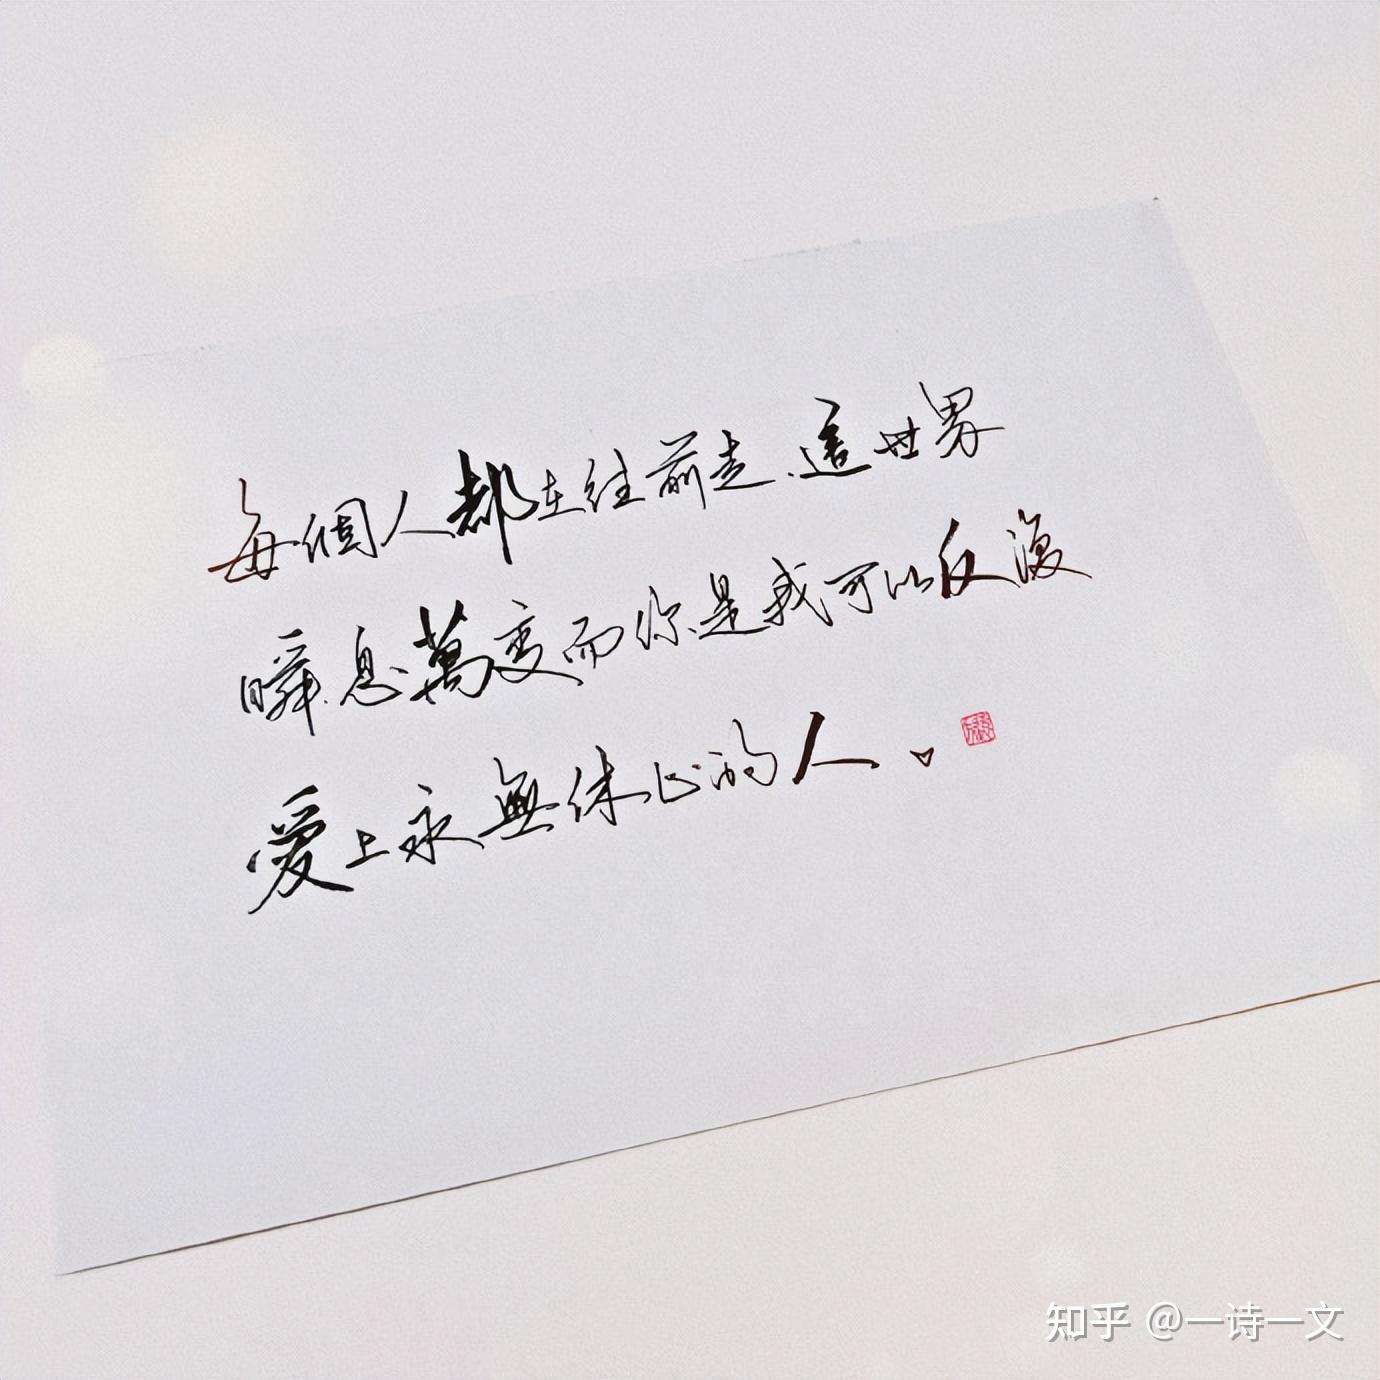 每個人都在往前走,這世界
瞬息萬变而你是我可以反復
爱上永無休止的人。
知乎 @一诗一文